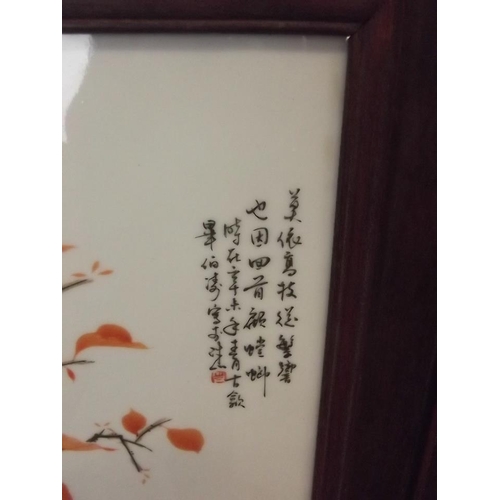 莫依高枝縱繁響
也因回首顧螳螂
時在辛未年月古歙
畢伯濤寫於珠山